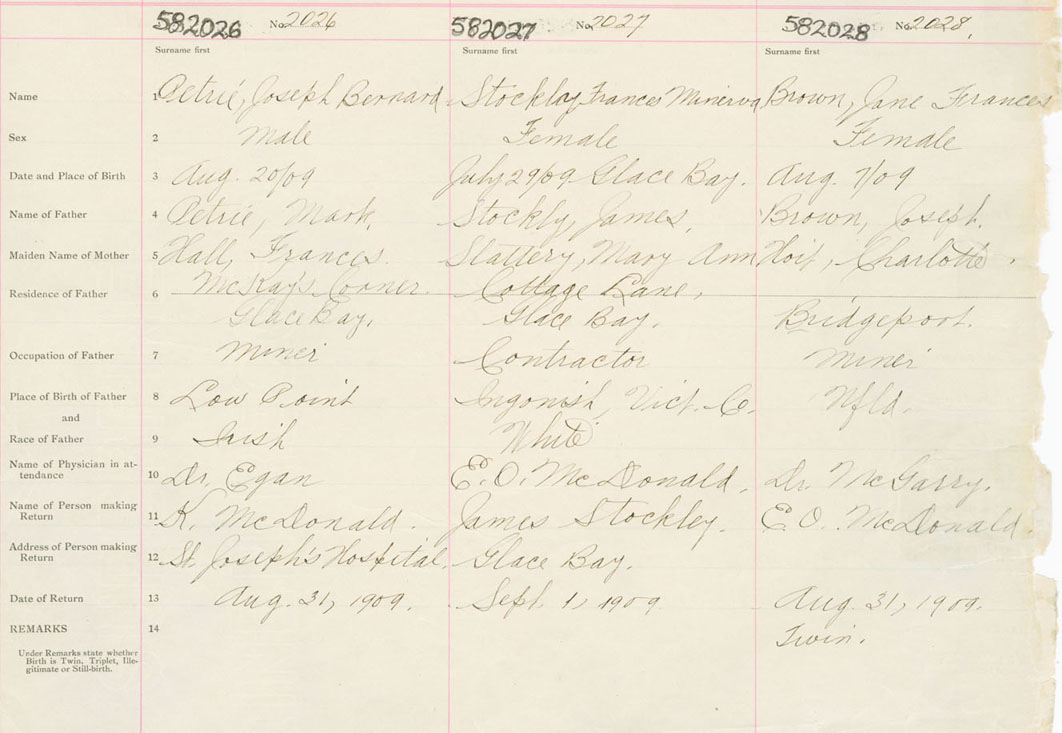 582026 No. 2026 582027 No. 2027 582028 No. 2028,
Surname first Surname first Surname first
Name 1 Petrie, Joseph Bernard Stockley Frances Minerva Brown, Jane Frances
Sex 2 Male Female Female
Date and Place of Birth 3 Aug. 20/09 July 29/09 Glace Bay. Aug. 7/09
Name of Father 4 Petrie, Mark, Stockly, James, Brown, Joseph.
Maiden Name of Mother 5 Hall, Frances. Slattery, Mary Ann Charlotte
Residence of Father 6 McKay's Corner. Cottage Lane,
Glace Bay, Glace Bay. Bridgeport.
Occupation of Father 7 Miner Contractor Miner
Place of Birth of Father 8 Low Point Ingonish, Vict. Co. Nfld.
and
Race of Father 9 Irish White
Name of Physician in at-
tendance 10 Dr. Egan E. O. McDonald. Dr. McGarry.
Name of Person making
Return 11 K. McDonald. James Stockley. E. O. McDonald.
Address of Person making
Return 12 St. Joseph's Hospital. Glace Bay.
Date of Return 13 Aug. 31, 1909. Sept. 1, 1909 Aug. 31, 1909.
REMARKS 14 Twin.
Under Remarks state whether
Birth is Twin, Triplet, Ille-
gitimate or Still-birth.